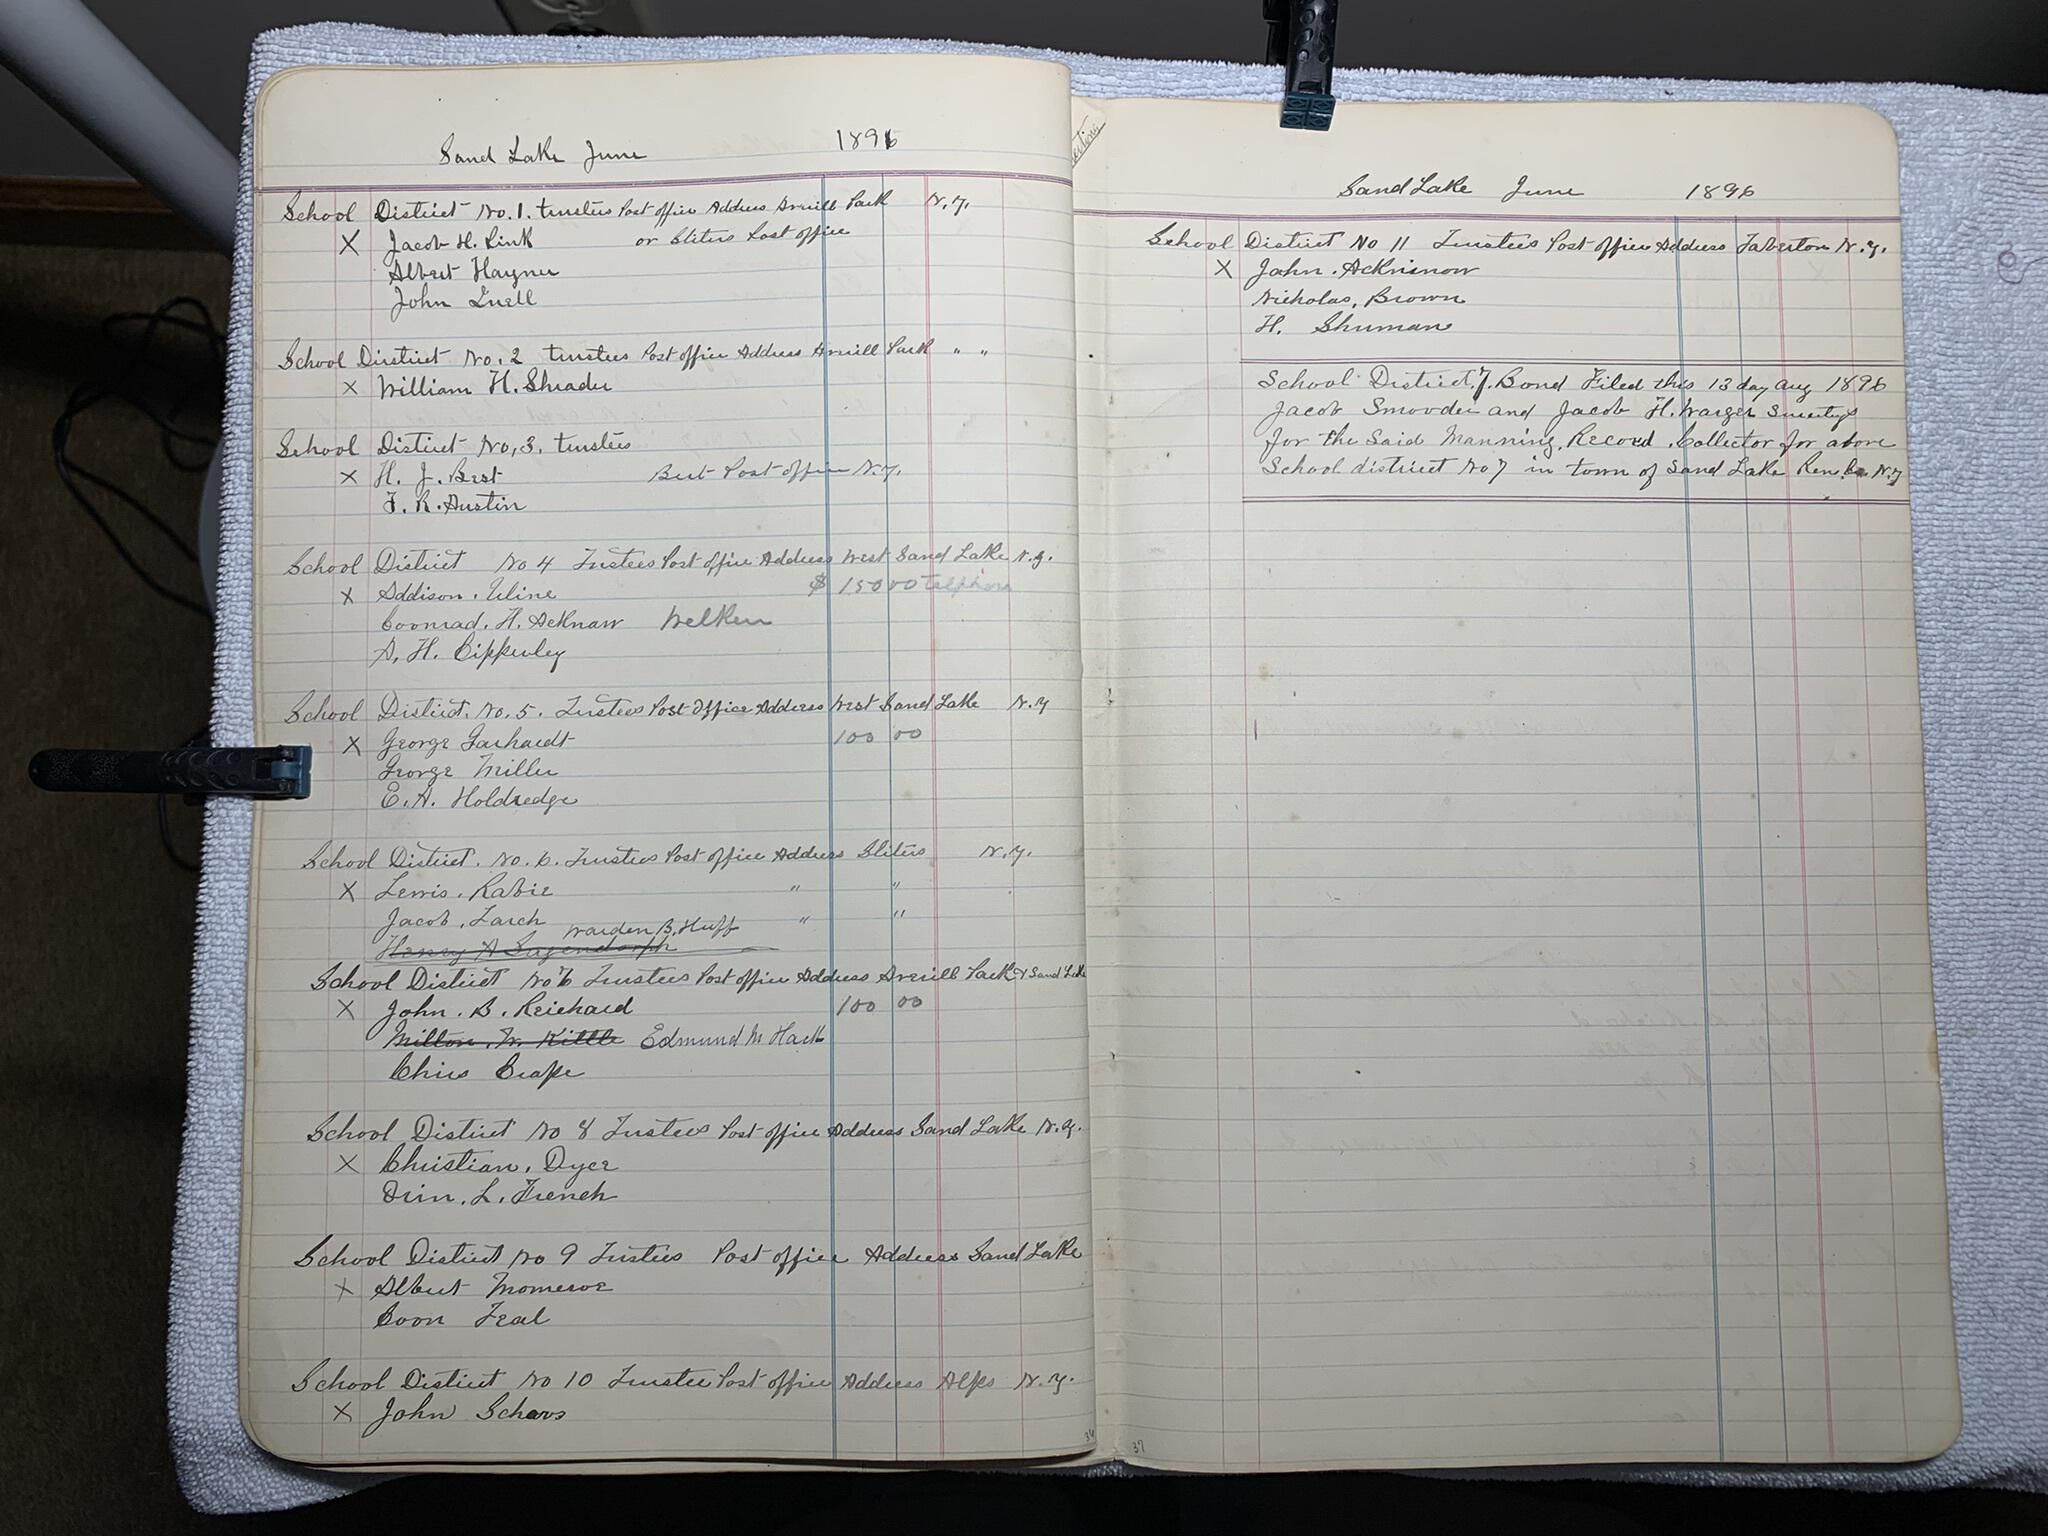 Sand Lake June 1896
School District No. 1. trustees Post office Address Averill Park N.Y.
X Jacob H. Link or Sliters Post office
Albert Hayner
John Snell
School District No. 2 trustees Post office Address Averill Park " "
X William H. Shrader
School District No, 3. trustees
X H. J. Best Best Post office N.Y.
F. R. Austin
School District No 4 Trustees Post office Address West Sand Lake N.Y.
X Addison. Uline $ 150 00 telphone
Coonrad. H. Acknaw Welken
A. H. Bipperley
School District. No. 5. Trustees Post Office Address West Sand Lake N.Y
X George Garhardt 100 00
George Miller
E. A. Holdredge
School District. No. 6. Trustees Post office Address Sliters N.Y.
X Lewis. Rabie " "
Jacob. Larch " "
Warden B. Huff
Henry A Sagendorph
School District No 7 Trustees Post office Address Averill Park & Sand Lake
X John. B. Reichard 100 00
Milton. W. Kittle Edmund M Hack
Chris Crape
School District No 8 Trustees Post office Address Sand Lake N.Y.
X Christian. Dyer
Orin. L. French
School District No 9 Trustees Post office Address Sand Lake
X Albert Momeroe
Coon Teal
School District No 10 Trustee Post office Address Alps N.Y.
X John Schavs
Sand Lake June 1896
School District No 11 Trustees Post office Address Taberton N.Y.
X John. Acknsnow
Nicholas. Brown
H. Shuman
School District. 7. Bond Filed this 13 day Aug 1896
Jacob Smovder and Jacob H. Warger Suertys
for the Said Manning. Record. Collector for above
School district No 7 in town of Sand Lake Ren. Co N.Y
37